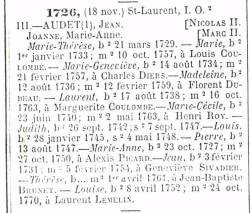 1726, (18 nov.) St-Laurent, I. O.²
III.—AUDET(1), JEAN. [NICOLAS II.
JOANNE, Marie-Anne. [MARC II.
Marie-Thérèse, b² 21 mars 1729. — Marie, b²
1er janvier 1733; m² 10 oct. 1757, à Louis COU-
LOMBE. — Marie-Geneviève, b² 14 août 1734; m²
21 février 1757, à Charles DIERS.—Madeleine, b²
12 août 1736; m² 12 février 1759, à Florent DU-
DEAU. — Laurent, b² 17 août 1738; m² 16 oct.
1763, à Marguerite COULOMBE. — Marie-Cécile, b²
23 juin 1740; m² 2 mai 1763, à Henri ROY. —
Judith, b² 26 sept. 1742; s² 7 sept. 1747.—Louis,
b² 28 janvier 1745; s² 4 mai 1748. — Pierre, b²
13 août 1747. — Marie-Anne, b² 23 oct. 1727; m²
27 oct. 1750, à Alexis PICARD.—Jean, b² 3 février
1731; m² 5 février 1754, à Geneviève SIVADIER.
— Thérèse, b... m² 1er avril 1761, à Jean-Baptiste
BRUNET. — Louise, b² 8 avril 1752; m² 24 oct.
1770, à Laurent LEMELIN.